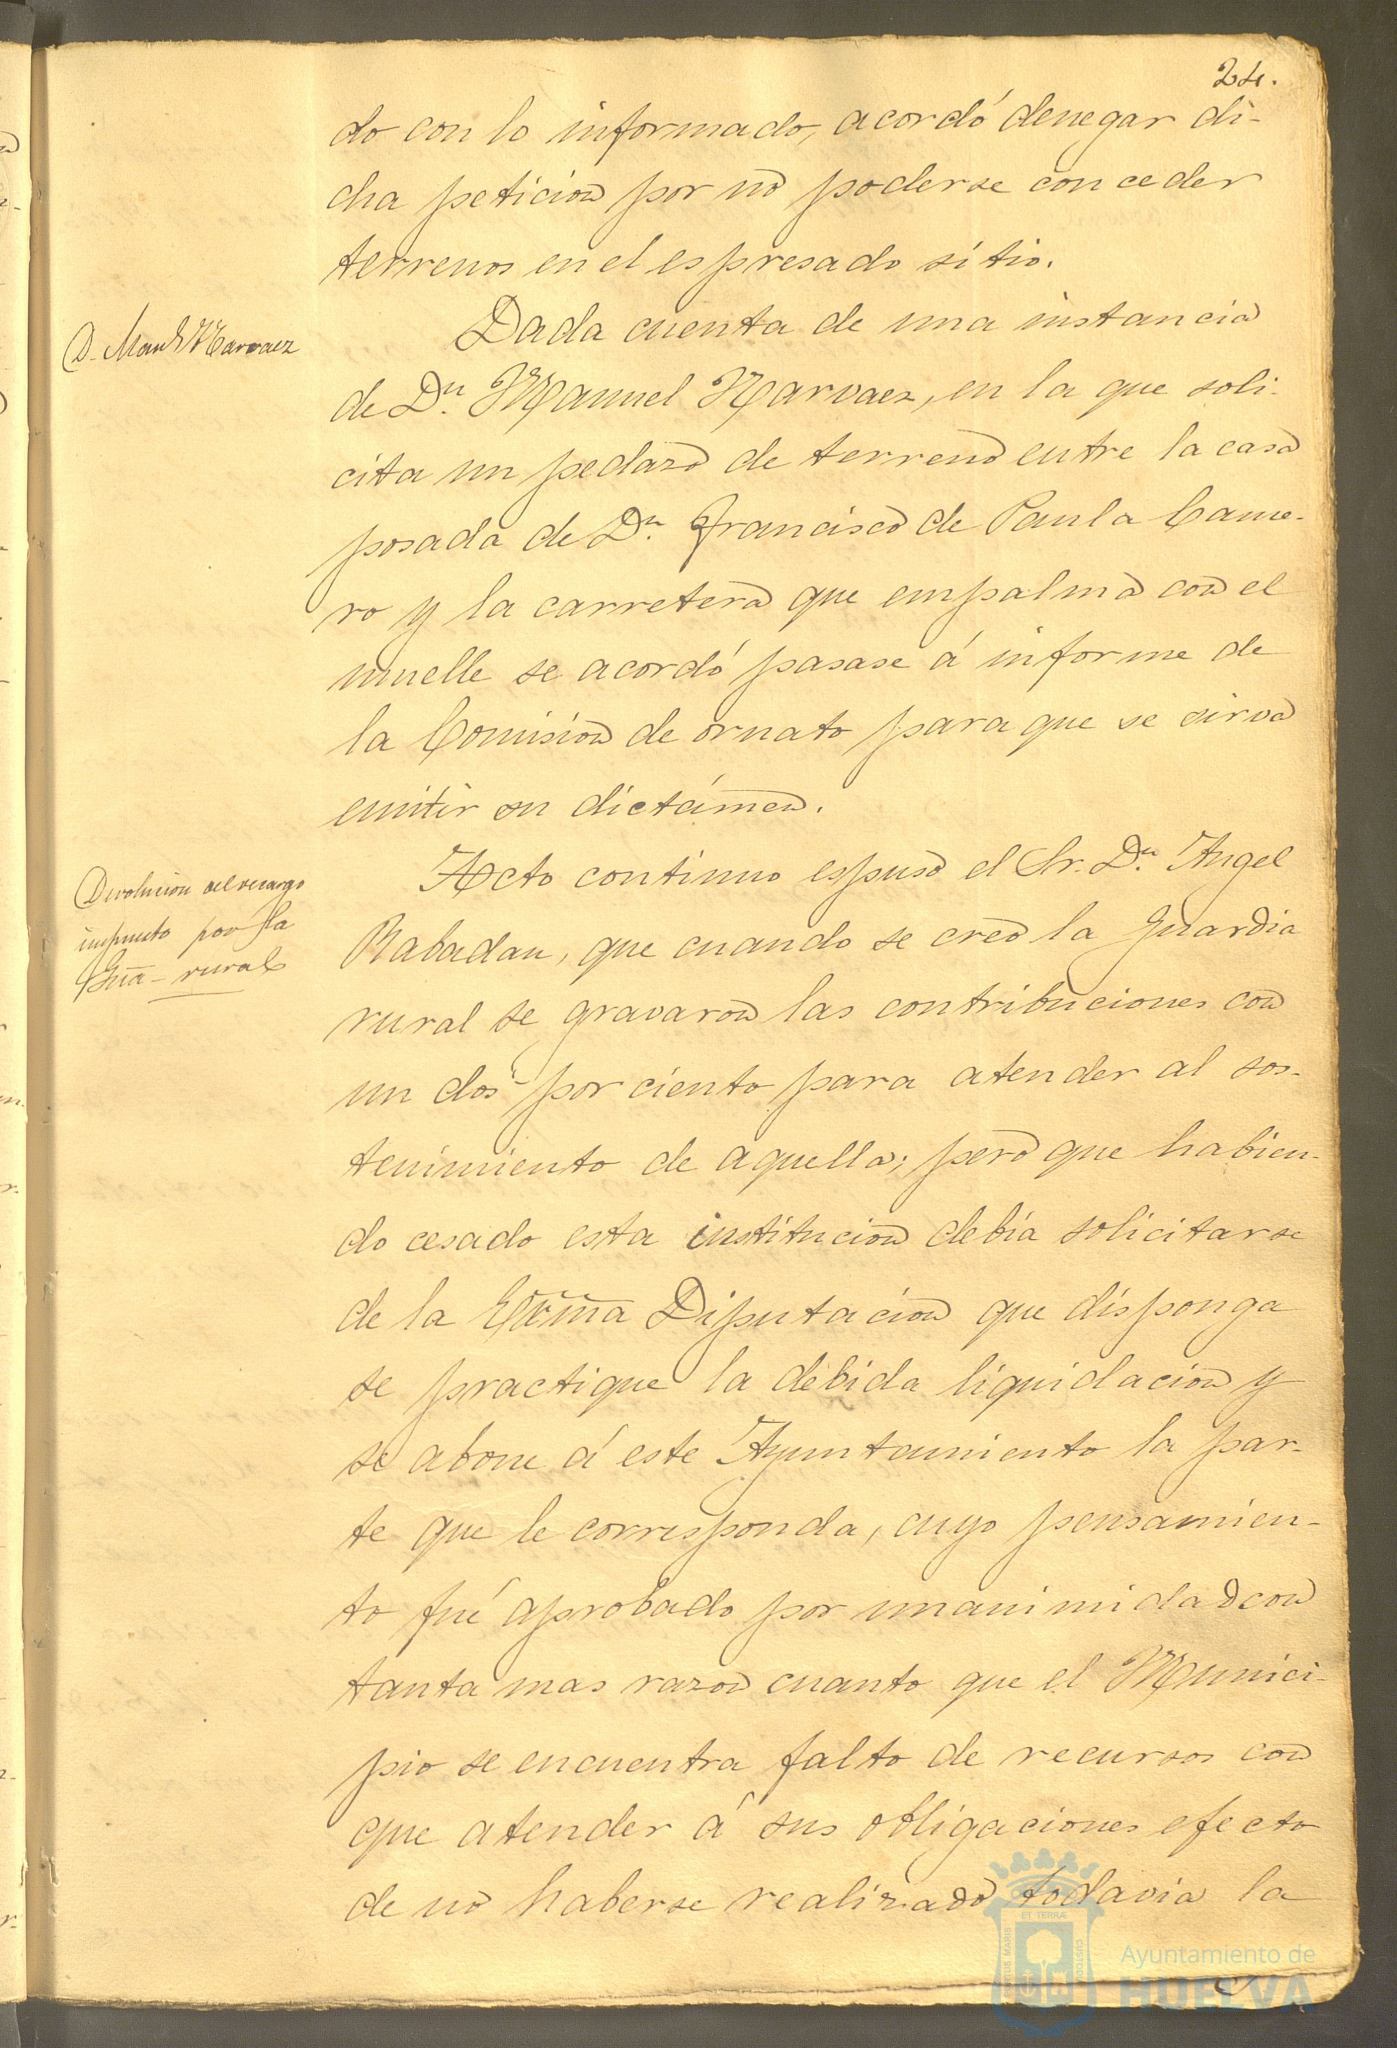 24.
do con lo informado, acordó denegar di-
cha peticion por no poderse conceder
terrenos en el espresado sitio.
D. Manl Narvaez
Dada cuenta de una instancia
de Dn. Manuel Narvaez, en la que soli-
cita un pedazo de terreno entre la casa
posada de Dn. Francisco de Paula Came-
ro y la carretera que empalma con el
muelle se acordó pasase á informe de
la Comision de ornato para que se sirva
emitir su dictámen.
Devolucion del recargo
impuesto por la
Gña- rural
Acto continuo espuso el Sr. Dn. Angel
Rabadan, que cuando se creó la Guardia
rural se gravaron las contribuciones con
un dos por ciento para atender al sos-
tenimiento de aquella; pero que habien-
do cesado esta institucion debia solicitarse
de la Exma Diputacion que disponga
se practique la debida liquidacion y
se abone á este Ayuntamiento la par-
te que le corresponda, cuyo pensamien-
to fué aprobado por unanimidad con
tanta mas razon cuanto que el Munici-
pio se encuentra falto de recursos con
que atender á sus obligaciones efecto
de no haberse realizado todavia la
Ayuntamiento de
HUELVA